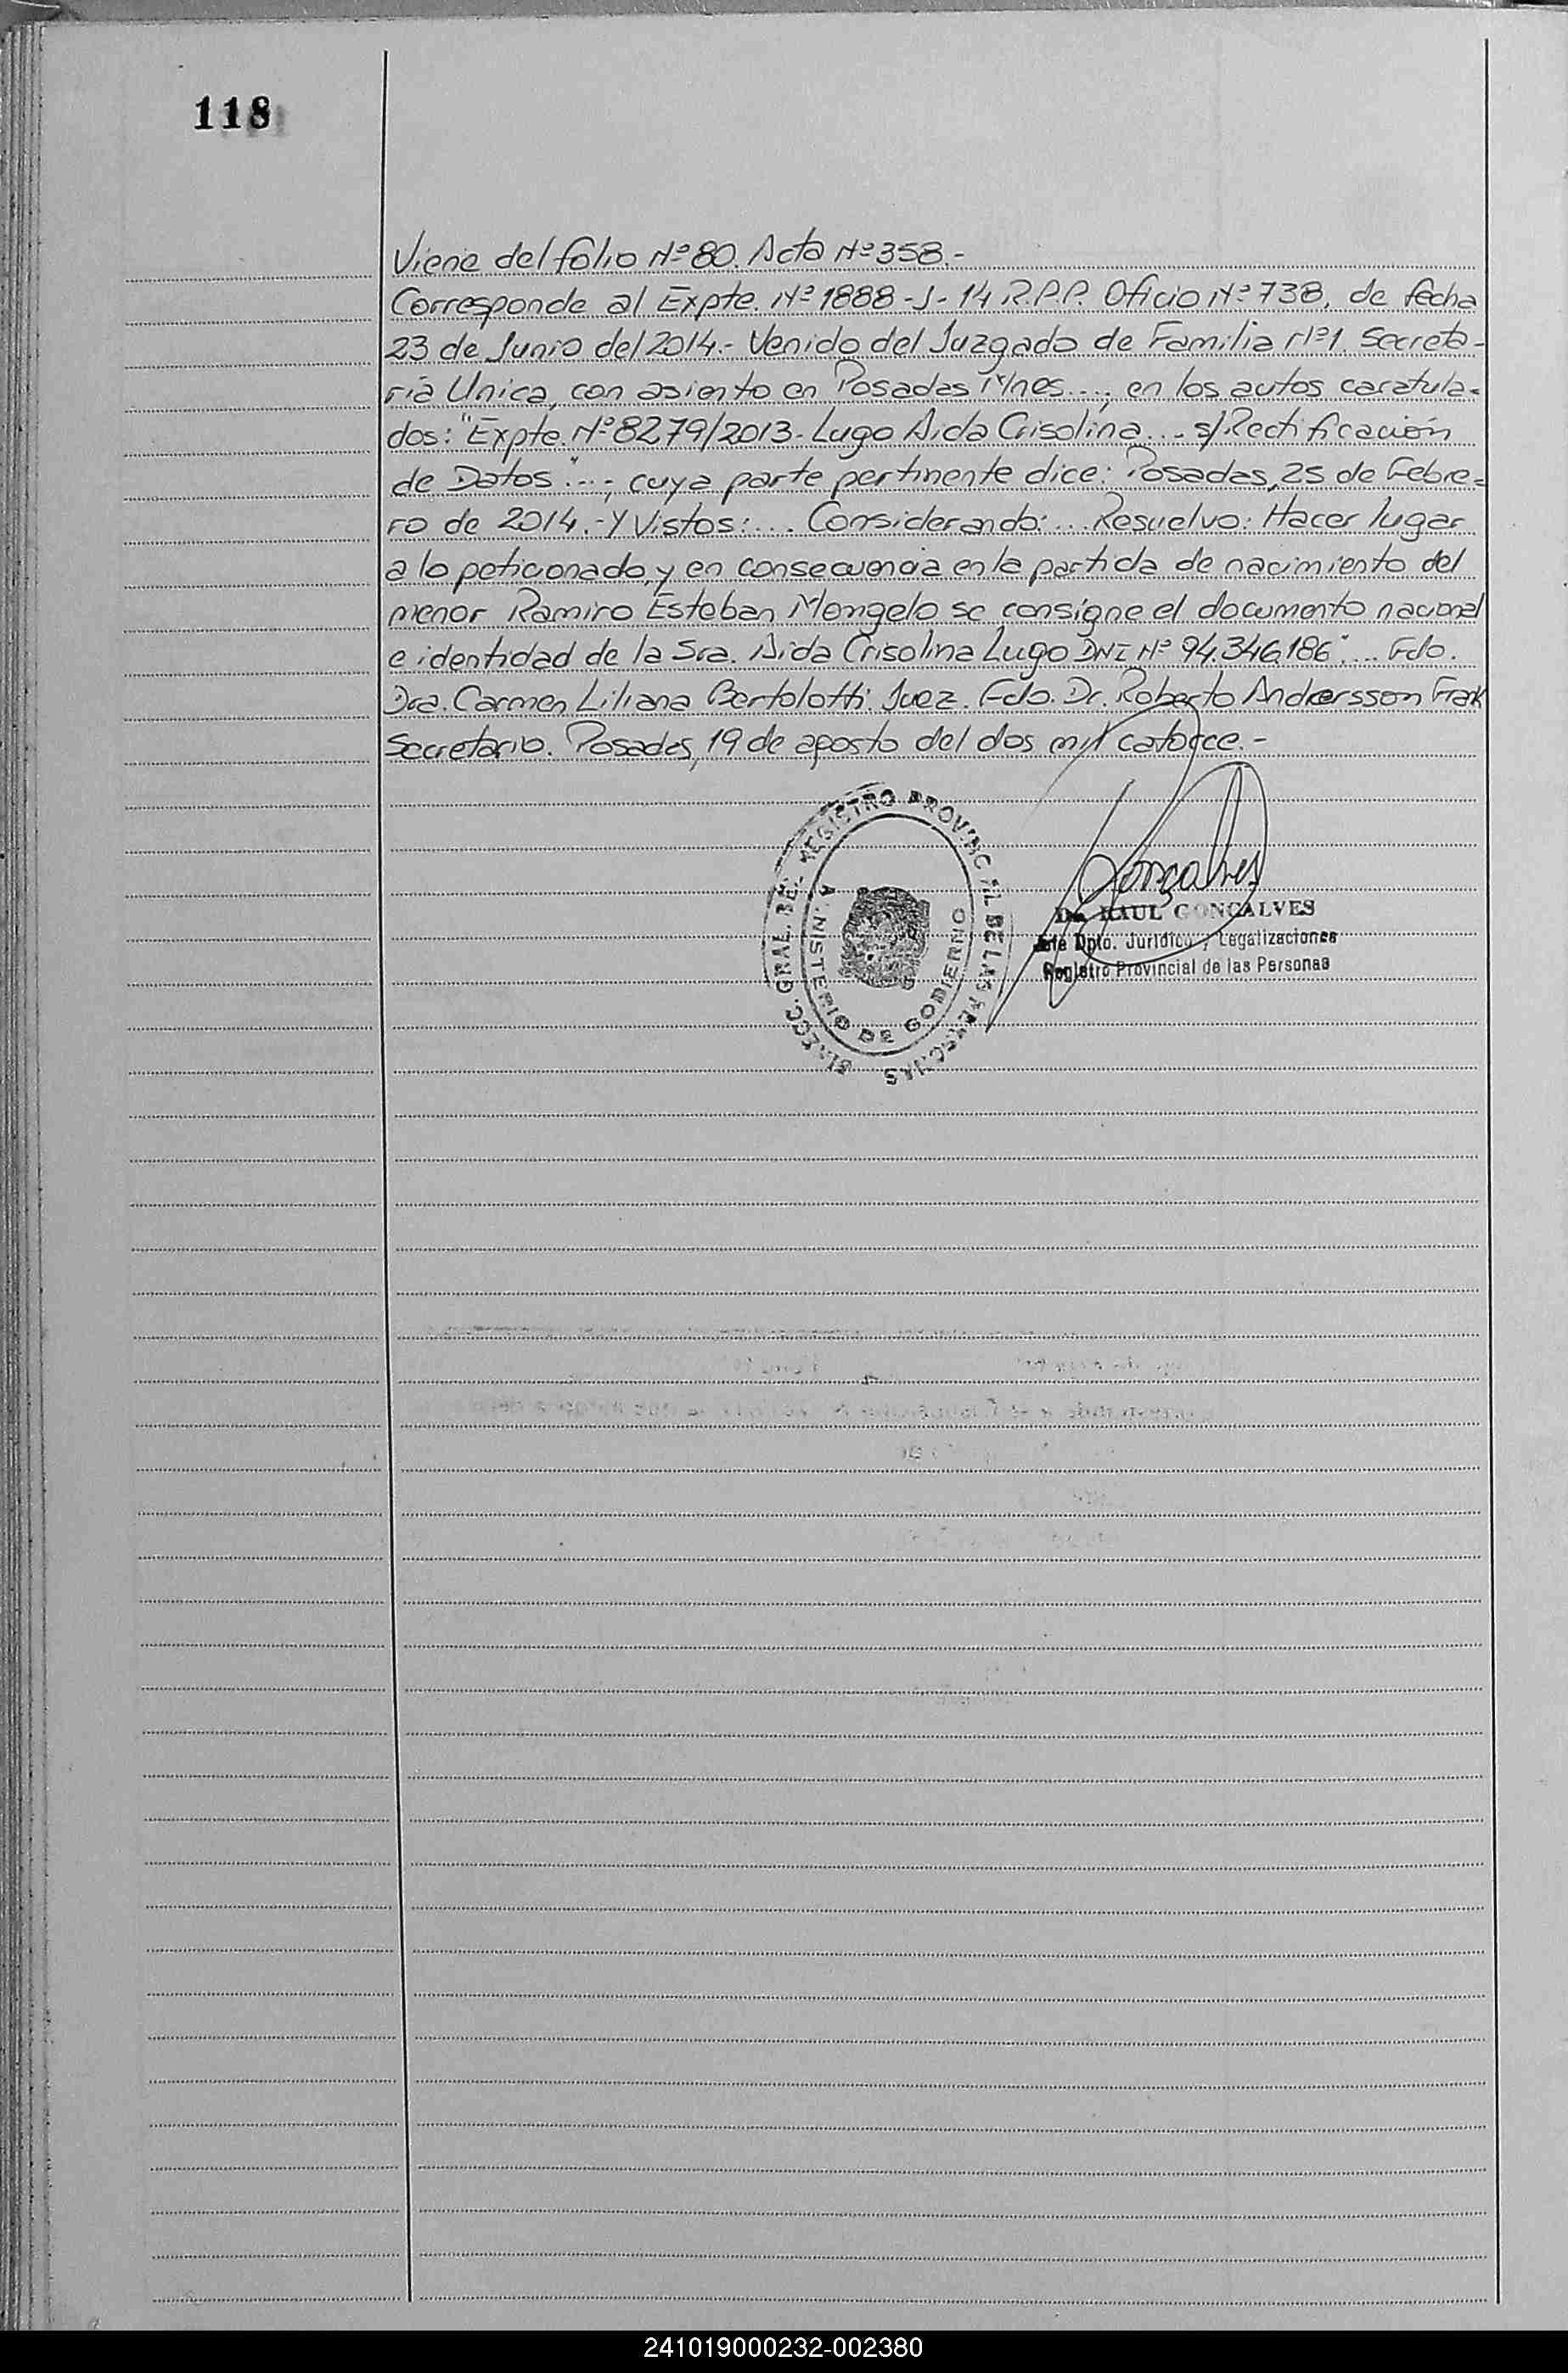 118
Viene del folio Nº 80. Acta Nº 358.-
Corresponde al Expte. Nº 1888-J-14 R.P.P. Oficio Nº 738, de fecha
23 de Junio del 2014.- Venido del Juzgado de Familia Nº1. Secreta-
ría Unica, con asiento en Posadas Mnes...; en los autos caratula-
dos: "Expte. Nº 8279/2013- Lugo Aida Crisolina... s/Rectificación
de Datos"...; cuya parte pertinente dice: Posadas, 25 de Febre-
ro de 2014.- Y Vistos:... Considerando:... Resuelvo: Hacer lugar
a lo peticionado, y en consecuencia en la partida de nacimiento del
menor Ramiro Esteban Mongelo se consigne el documento nacional
e identidad de la Sra. Aida Crisolina Lugo DNI Nº 94.346.186".... Fdo.
Dra. Carmen Liliana Bertolotti. Juez. Fdo. Dr. Roberto Andersson Frak
Secretario. Posadas, 19 de agosto del dos mil catorce.-
DIRECC. GRAL. DEL REGISTRO PROVINCIAL DE LAS PERSONAS
MINISTERIO DE GOBIERNO
Gonçalves
Dr. RAUL GONÇALVES
Jefe Dpto. Jurídico y Legalizaciones
Registro Provincial de las Personas
241019000232-002380